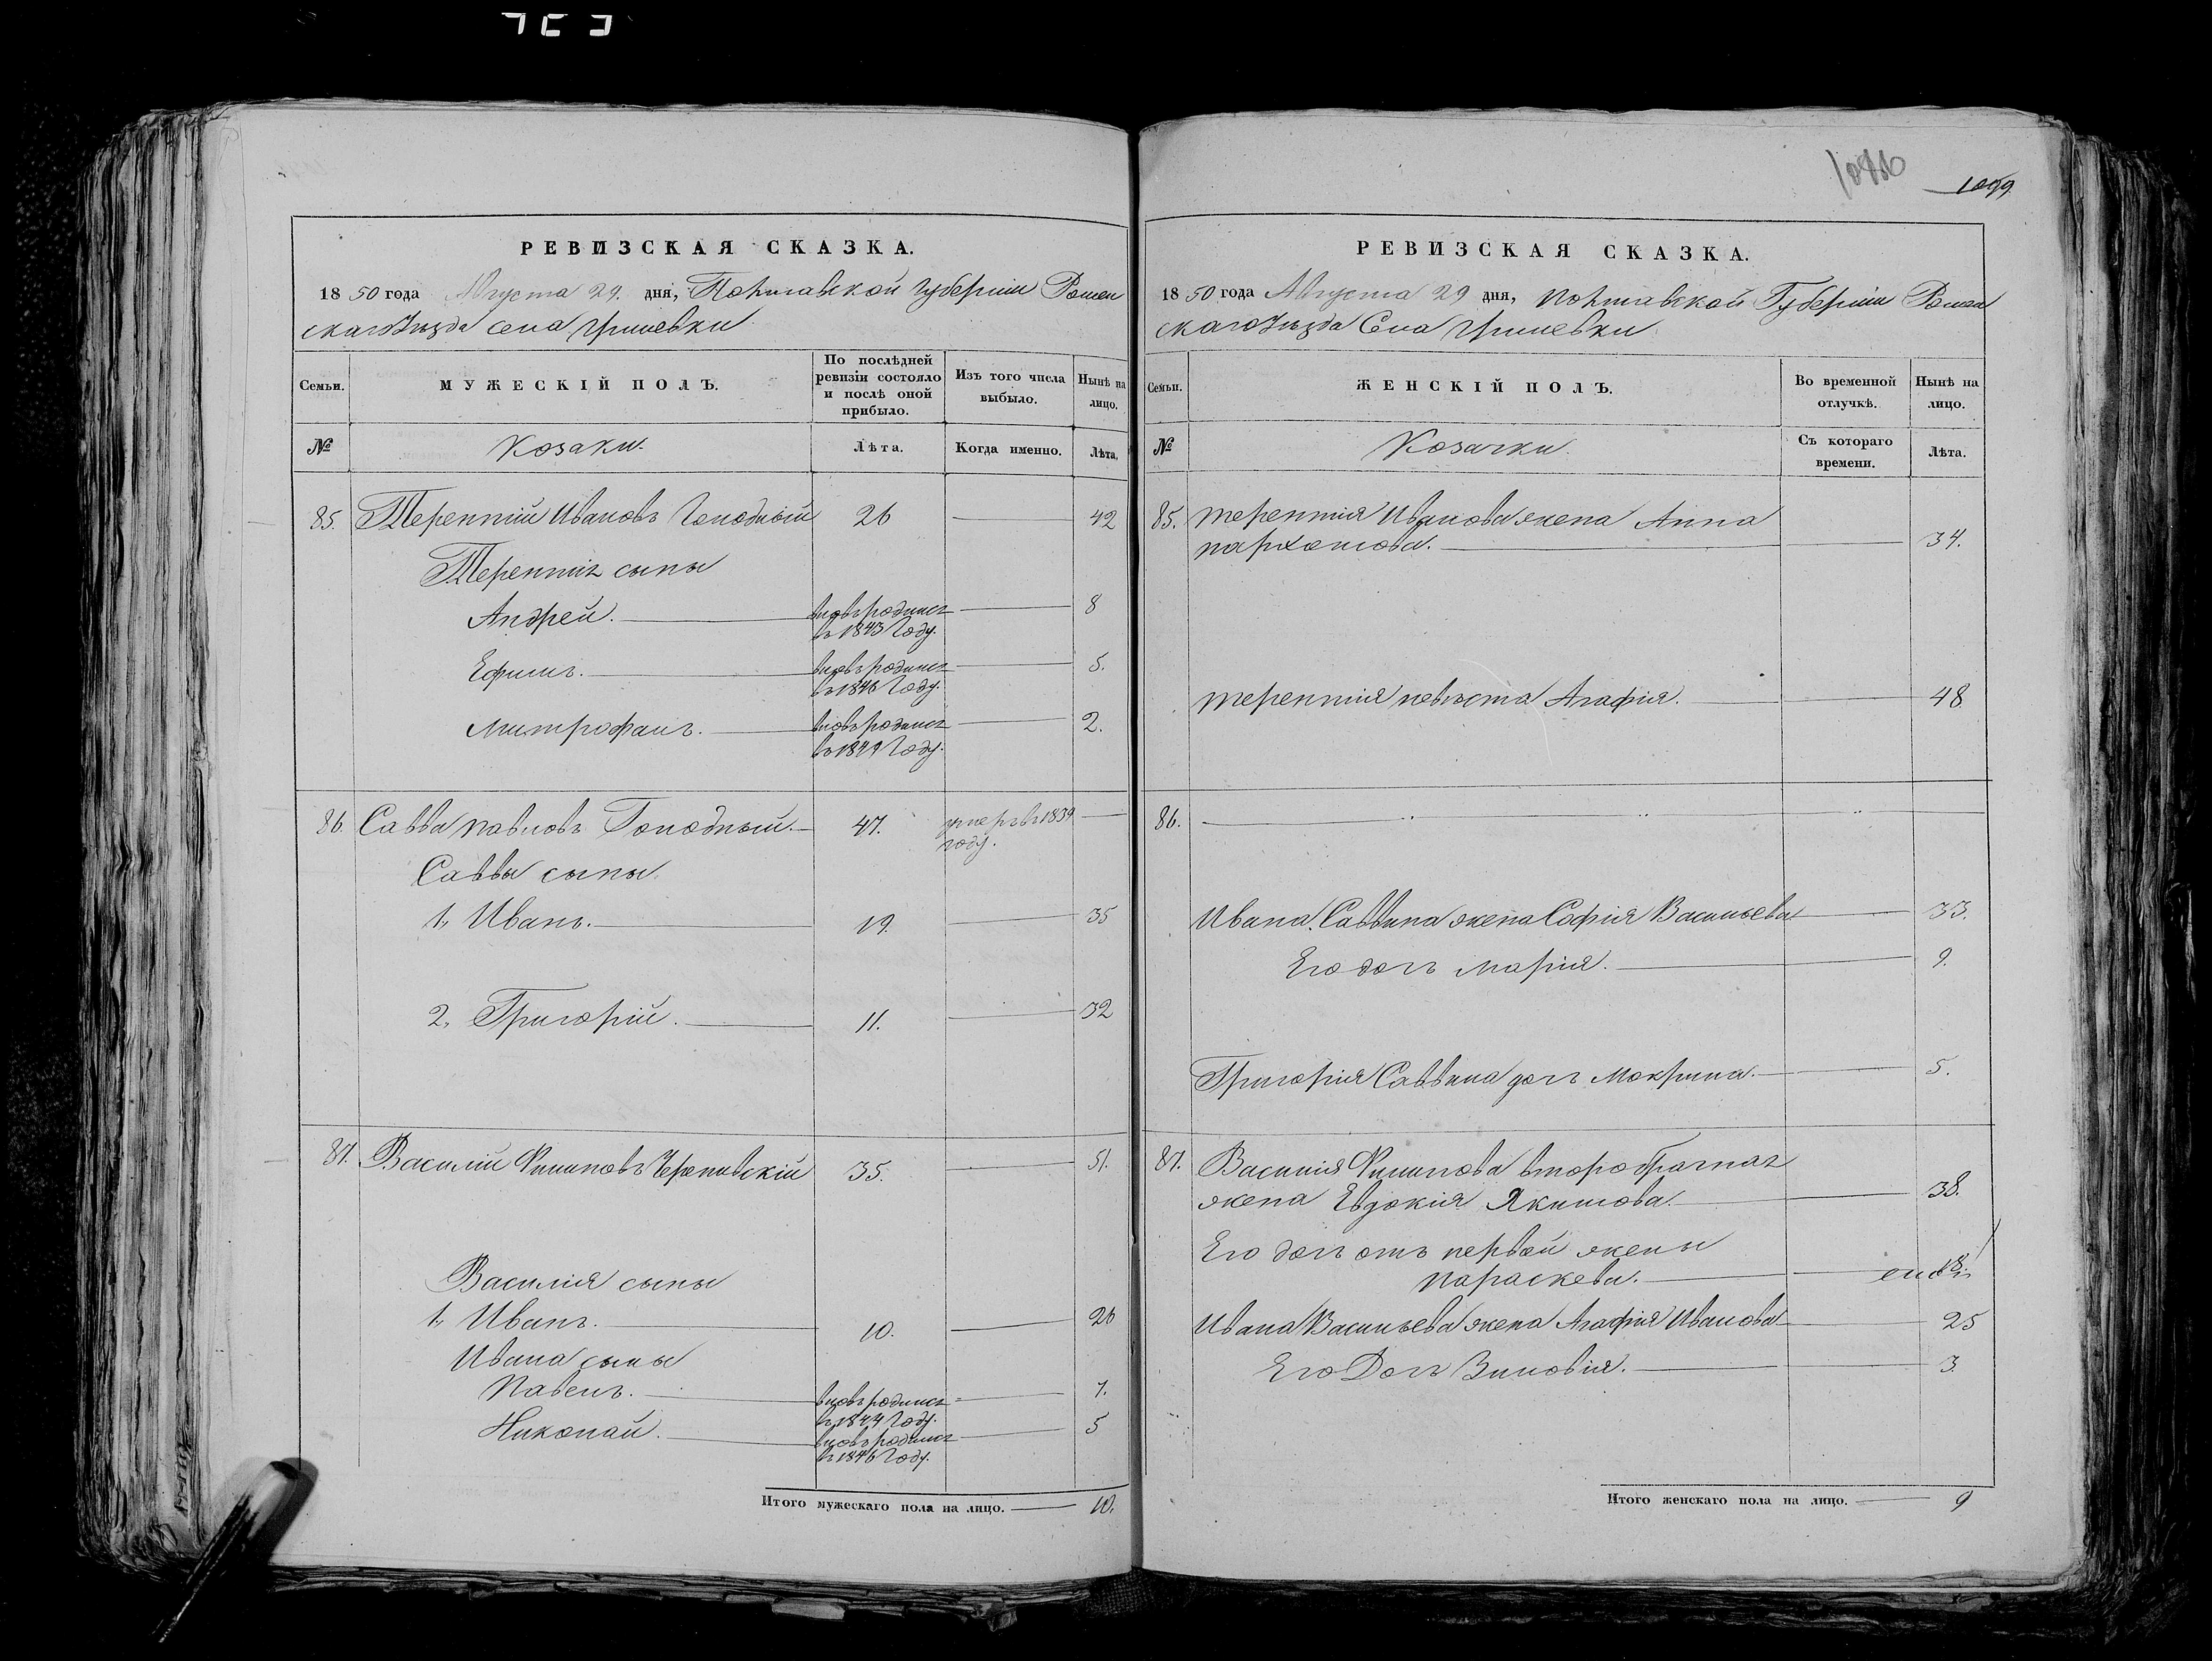 1099
РЕВИЗСКАЯ СКАЗКА.
1850 года Августа 29. дня, Полтавской губерніи Ромен
скаго Уѣзда села Гришевки
Семьи. МУЖЕСКІЙ ПОЛЪ. По послѣдней ревизіи состояло и послѣ оной прибыло. Изъ того числа выбыло. Нынѣ на лицо.
№ Козаки. Лѣта. Когда именно. Лѣта.
85. Терентій Ивановъ Голодный 26 42
Терентія сыны
Андрей. вновь родился 8
въ 1843 Году.
Ефимъ. вновь родился 5.
въ 1846 Году.
Митрофанъ. вновь родился 2.
въ 1849 Году.
86. Савва Павловъ Голодный. 47. умеръ въ 1839
году.
Саввы сыны
1, Иванъ. 19. 35
2, Григорій. 11. 32
87. Василій Филиповъ Черепивскій 35. 51.
Василія сыны
1, Иванъ. 10. 26
Ивана сыны
Павелъ. вновь родился 7.
въ 1844 Году.
Николай. вновь родился 5
въ 1846 Году.
Итого мужескаго пола на лицо. 10.
РЕВИЗСКАЯ СКАЗКА.
1850 года Августа 29 дня, Полтавской Губерніи Ромен
скаго Уѣзда Села Гришевки
Семьи. ЖЕНСКІЙ ПОЛЪ. Во временной отлучкѣ. Нынѣ на лицо.
№ Козачки. Съ котораго времени. Лѣта.
85. Терентія Иванова жена Анна
Пархомова. 34.
Терентія невѣста Агафія. 48
86.
Ивана Саввина жена Софія Васильева 33.
Его дочь Марія. 9.
Григорія Саввина дочь Мокрина. 5.
87. Василія Филипова второбрачная
жена Евдокія Якимова. 38.
Его дочь отъ первой жены
Параскева. 18.
Ивана Васильева жена Агафія Иванова 25
Его Дочь Зиновія. 3
Итого женскаго пола на лицо. 9